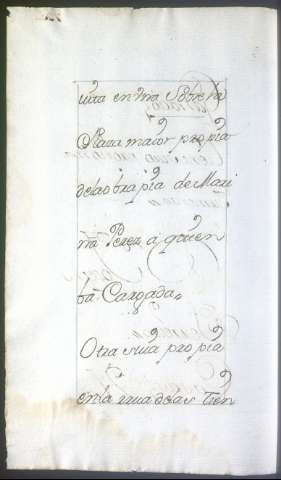 uita en vna Sobre la
Plaza maior propia
de la obra pia de Mari
na Perez a quien
ba Cargada.
Otra suia propia
en la rrua delas Tien